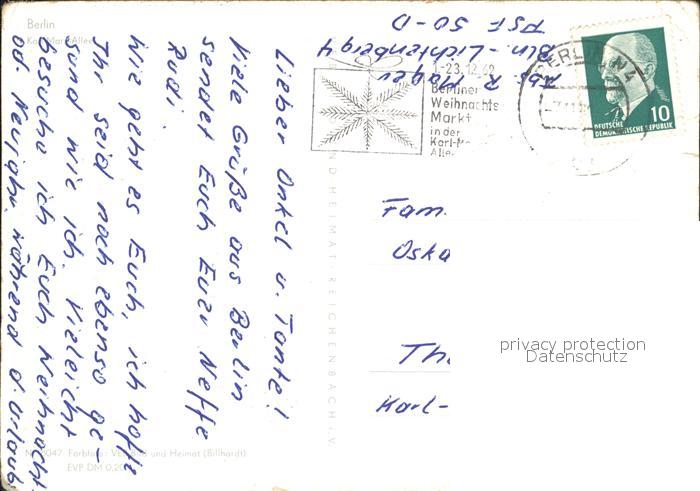 Berlin
Karl-Marx-Allee
Lieber Onkel u. Tante!
Viele Grüße aus Berlin
sendet Euch Euer Neffe
Rudi.
Wie geht es Euch, ich hoffe
Ihr seid noch ebenso ge-
sund wie ich. Vieleicht
besuche ich Euch Weihnacht.
od. Neujahr während d. Urlaub
Abs. R. Hager
Bln.-Lichtenberg 4
PSF 50-D
1.-23.12.62
Berliner
Weihnachts
Markt
in der
Karl-Ma
Alle
BERLIN N4
10
DEUTSCHE
DEMOKRATISCHE REPUBLIK
Fam.
Oska
Th
Karl-
privacy protection
Datenschutz
ND HEIMAT REICHENBACH I. V.
047 Farbfoto: VEB und Heimat (Billhardt)
EVP DM 0,20